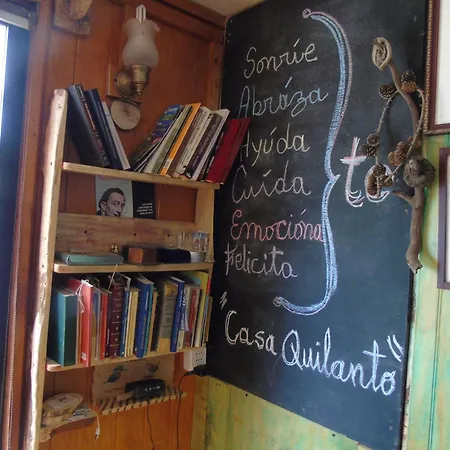 Sonríe
Abráza
Ayúda
Cuída
Emocióna
Felicita
te
"Casa Quilanto"